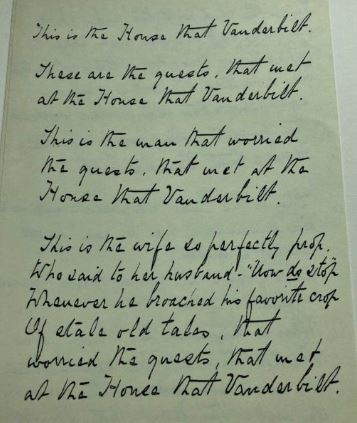 This is the House that Vanderbilt.
These are the guests, that met
at the House that Vanderbilt.
This is the man that worried
the guests, that met at the
House that Vanderbilt.
This is the wife so perfectly prop.
Who said to her husband - "Now do stop
Whenever he broached his favorite crop
Of stale old tales, that
worried the guests, that met
at the House that Vanderbilt.